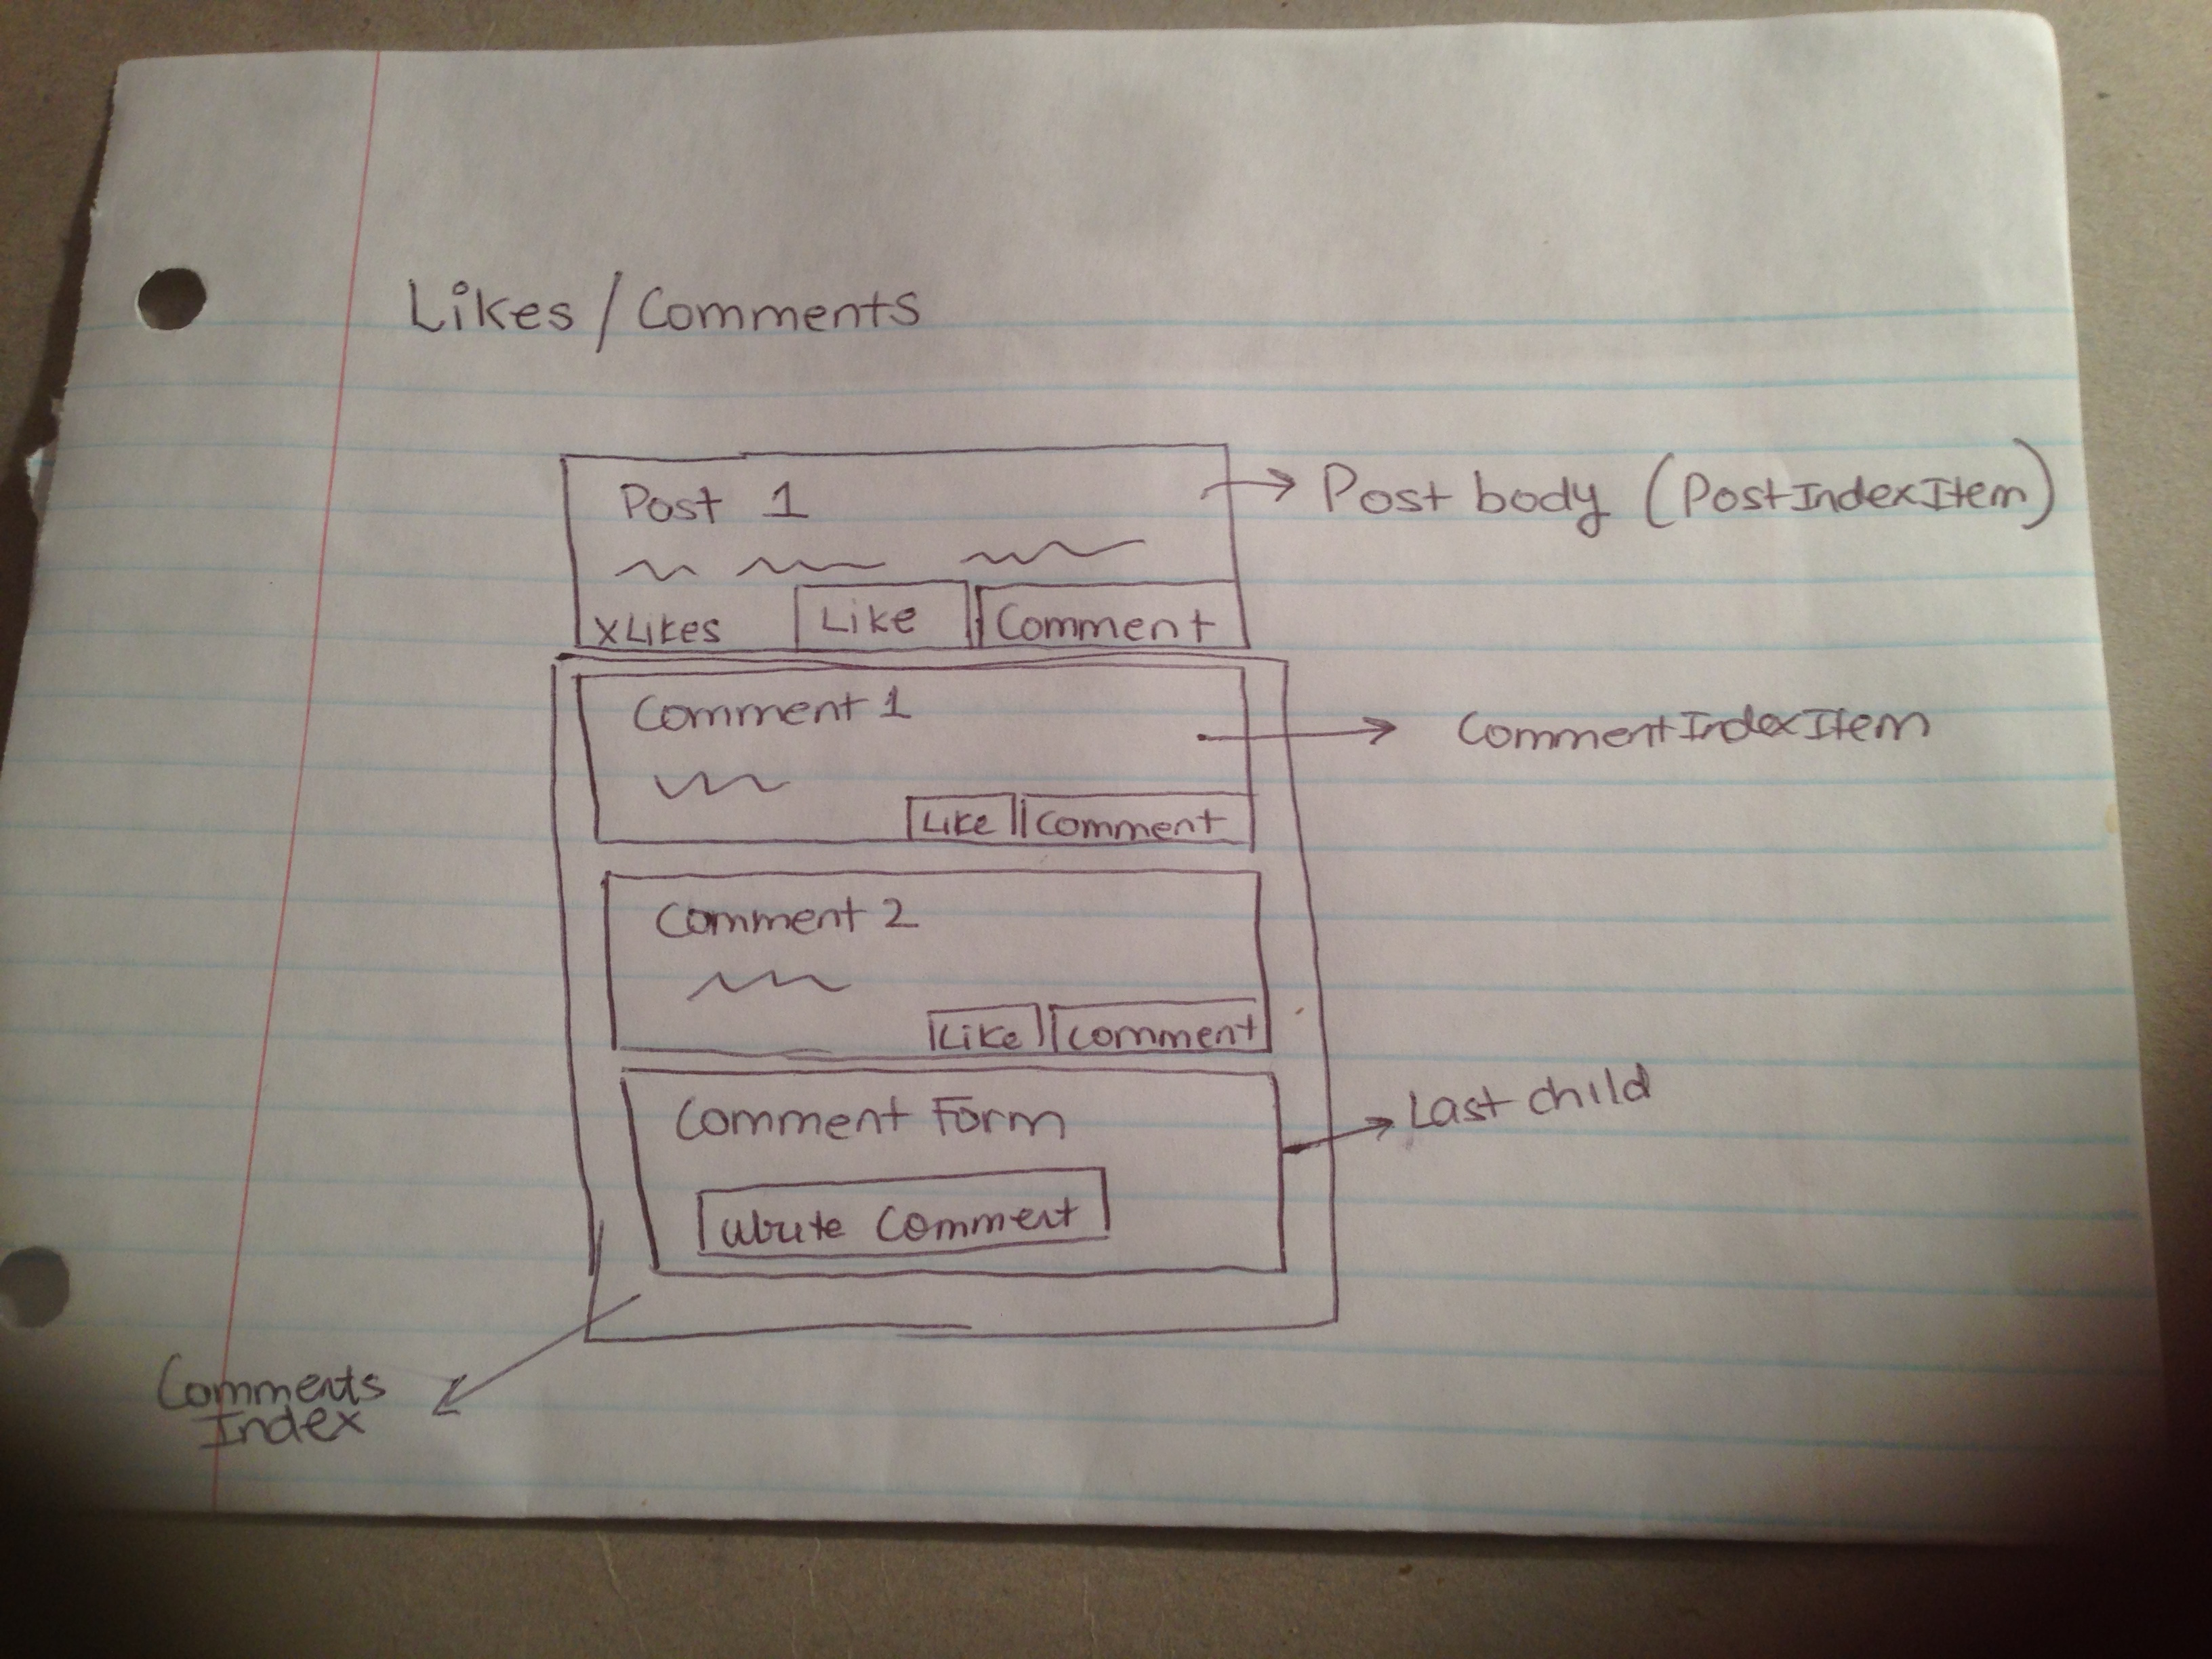 Likes / Comments
Post 1
Post body (PostIndexItem)
X Likes Like Comment
Comment 1
CommentIndexItem
Like Comment
Comment 2
Like Comment
Comment Form
Last child
Write Comment
Comments
Index